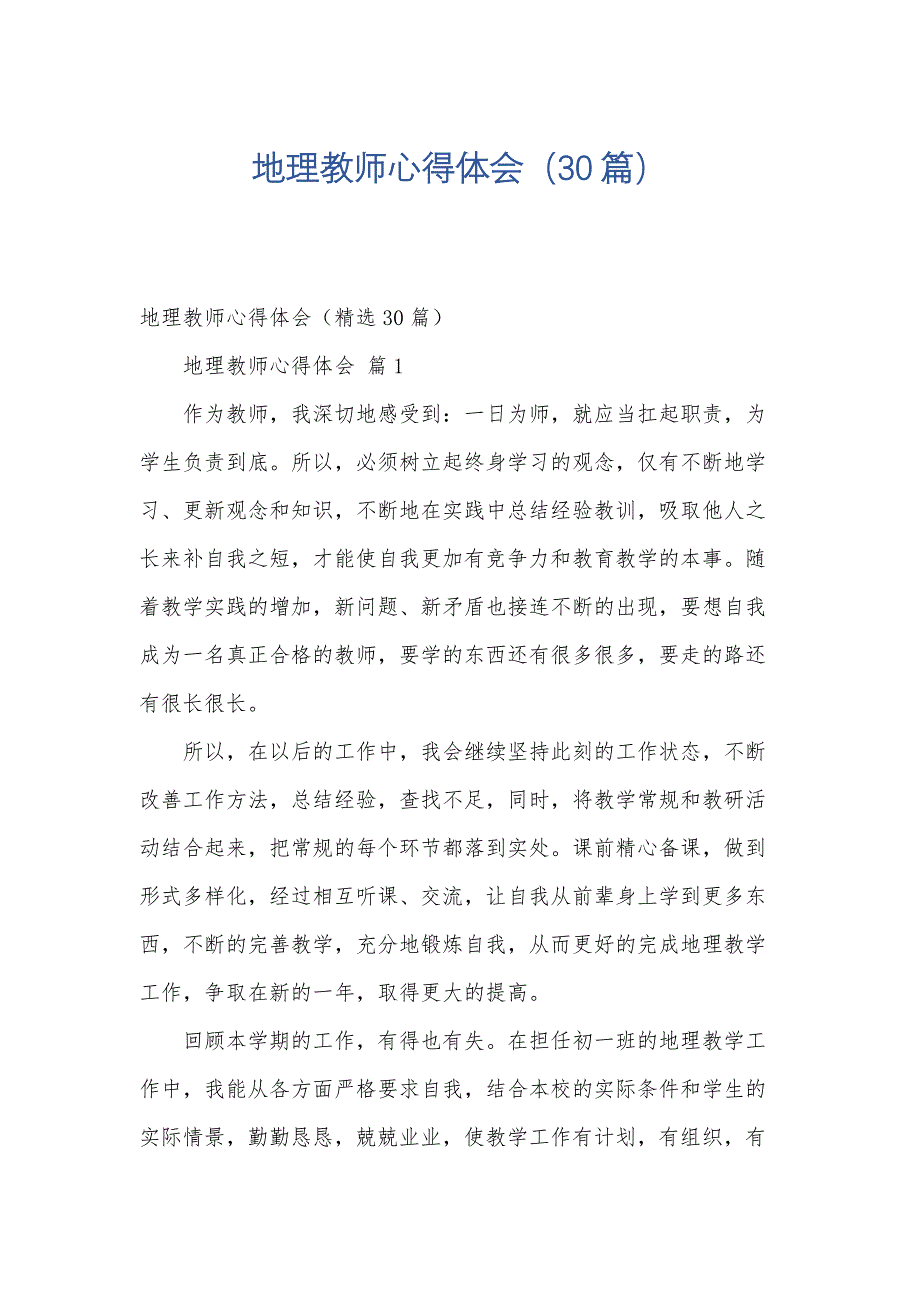 地理教师心得体会（30 篇）
地理教师心得体会（精选 30 篇）
地理教师心得体会 篇 1
作为教师，我深切地感受到：一日为师，就应当扛起职责，为
学生负责到底。所以，必须树立起终身学习的观念，仅有不断地学
习、更新观念和知识，不断地在实践中总结经验教训，吸取他人之
长来补自我之短，才能使自我更加有竞争力和教育教学的本事。随
着教学实践的增加，新问题、新矛盾也接连不断的出现，要想自我
成为一名真正合格的教师，要学的东西还有很多很多，要走的路还
有很长很长。
所以，在以后的工作中，我会继续坚持此刻的工作状态，不断
改善工作方法，总结经验，查找不足，同时，将教学常规和教研活
动结合起来，把常规的每个环节都落到实处。课前精心备课，做到
形式多样化，经过相互听课、交流，让自我从前辈身上学到更多东
西，不断的完善教学，充分地锻炼自我，从而更好的完成地理教学
工作，争取在新的一年，取得更大的提高。
回顾本学期的工作，有得也有失。在担任初一班的地理教学工
作中，我能从各方面严格要求自我，结合本校的实际条件和学生的
实际情景，勤勤恳恳，兢兢业业，使教学工作有计划，有组织，有